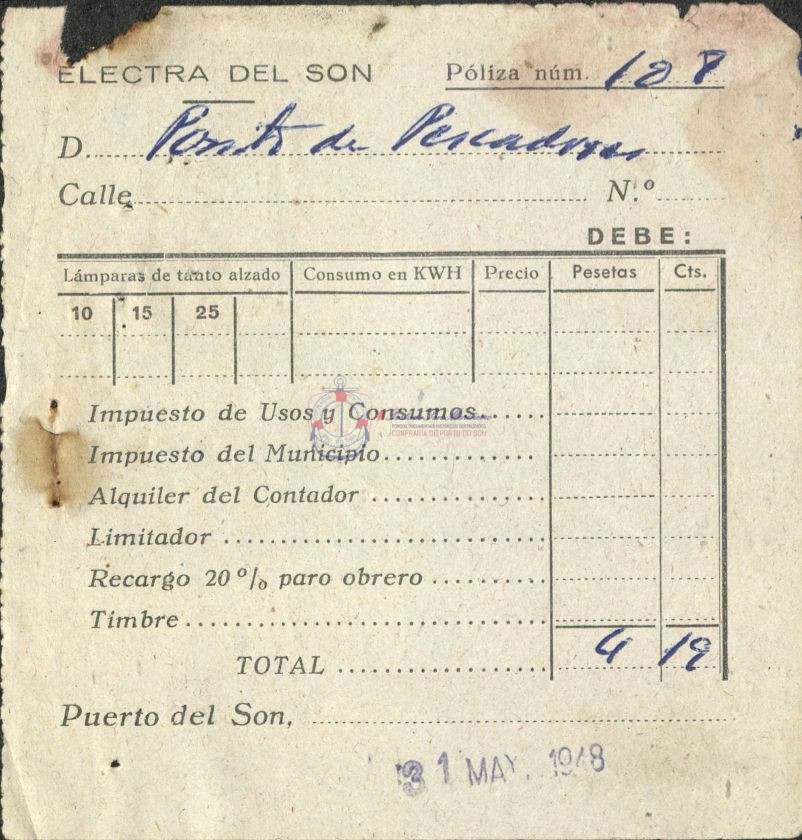 ELECTRA DEL SON
Póliza núm. 108
D. Posito de Pescadores
Calle N.º
DEBE:
Lámparas de tanto alzado Consumo en KWH Precio Pesetas Cts.
10 15 25
Impuesto de Usos y Consumos
Impuesto del Municipio
Alquiler del Contador
Limitador
Recargo 20 % paro obrero
Timbre
TOTAL 4 19
Puerto del Son,
31 MAY. 1948
CONFRARÍA DE PORTO DO SON